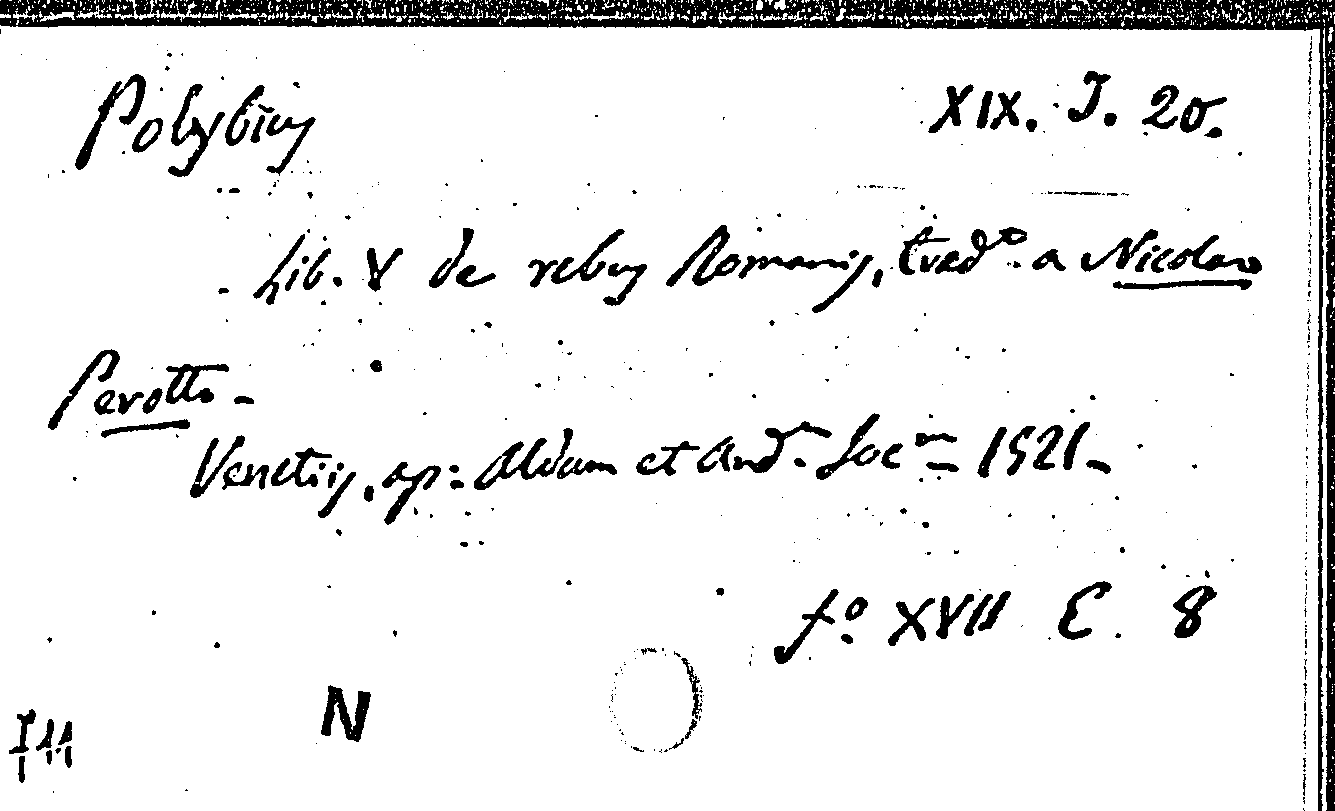 Polybius XIX. J. 20.
Lib. V de rebus Romanis, trad.º a Nicolao
Perotto -
Venetiis, ap: Aldum et And. Soc.m - 1521 -
fº. XVII E 8
N